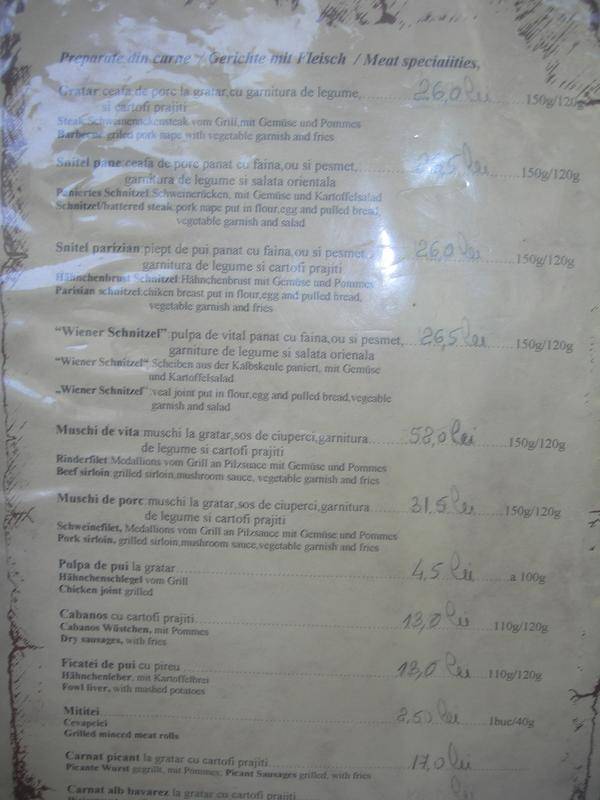 Preparate din carne / Gerichte mit Fleisch / Meat speciaiities,
Gratar ceafa de porc la gratar,cu garnitura de legume,.......... 26,0 lei ....... 150g/120g
si cartofi prajiti
Steak Schweinerückensteak vom Grill,mit Gemüse und Pommes
Barbecue griled pork nape,with vegetable garnish and fries
Snitel pane:ceafa de porc panat cu faina,ou si pesmet, ,5 lei 150g/120g
garnitura de legume si salata orientala
Paniertes Schnitzel:Schweinerücken, mit Gemüse und Kartoffelsalad
Schnitzel/battered steak:pork nape put in flour,egg and pulled bread,
vegetable garnish and salad
Snitel parizian:piept de pui,panat cu faina,ou si pesmet, 26,0 lei ...... 150g/120g
garnitura de legume si cartofi prajiti
Hähnchenbrust Schnitzel:Hähnchenbrust mit Gemüse und Pommes
Parisian schnitzel:chiken breast put in flour,egg and pulled bread,
vegetable garnish and fries
“Wiener Schnitzel”:pulpa de vital panat cu faina,ou si pesmet,... 26,5 lei ...... 150g/120g
garniture de legume si salata orienala
“Wiener Schnitzel“:Scheiben aus der Kalbskeule paniert, mit Gemüse
und Kartoffelsalad
„Wiener Schnitzel”:veal joint put in flour,egg and pulled bread,vegeable
garnish and salad
Muschi de vita:muschi la gratar,sos de ciuperci,garnitura....... 58,0 lei ...... 150g/120g
de legume si cartofi prajiti
Rinderfilet:Medallions vom Grill an Pilzsauce mit Gemüse und Pommes
Beef sirloin:grilled sirloin,mushroom sauce, vegetable garnish and fries
Muschi de porc:muschi la gratar,sos de ciuperci,garnitura...... 31,5 lei ......150g/120g
de legume si cartofi prajiti
Schweinefilet, Medallions vom Grill an Pilzsauce mit Gemüse und Pommes
Pork sirloin, grilled sirloin,mushroom sauce,vegetable garnish and fries
Pulpa de pui la gratar........ 4,5 lei ........a 100g
Hähnchenschlegel vom Grill
Chicken joint grilled
Cabanos cu cartofi prajiti........ 13,0 lei ...... 110g/120g
Cabanos Wüstchen, mit Pommes
Dry sausages, with fries
Ficatei de pui cu pireu........ 13,0 lei ...... 110g/120g
Hähnchenleber, mit Kartoffelbrei
Fowl liver, with mashed potatoes
Mititei ........ 2,50 lei ...... 1buc/40g
Cevapcici
Grilled minced meat rolls
Carnat picant la gratar cu cartofi prajiti........ 17,0 lei
Picante Wurst gegrillt, mit Pommes; Picant Sausages grilled, with fries
Carnat alb bavarez la gratar cu cartofi prajiti